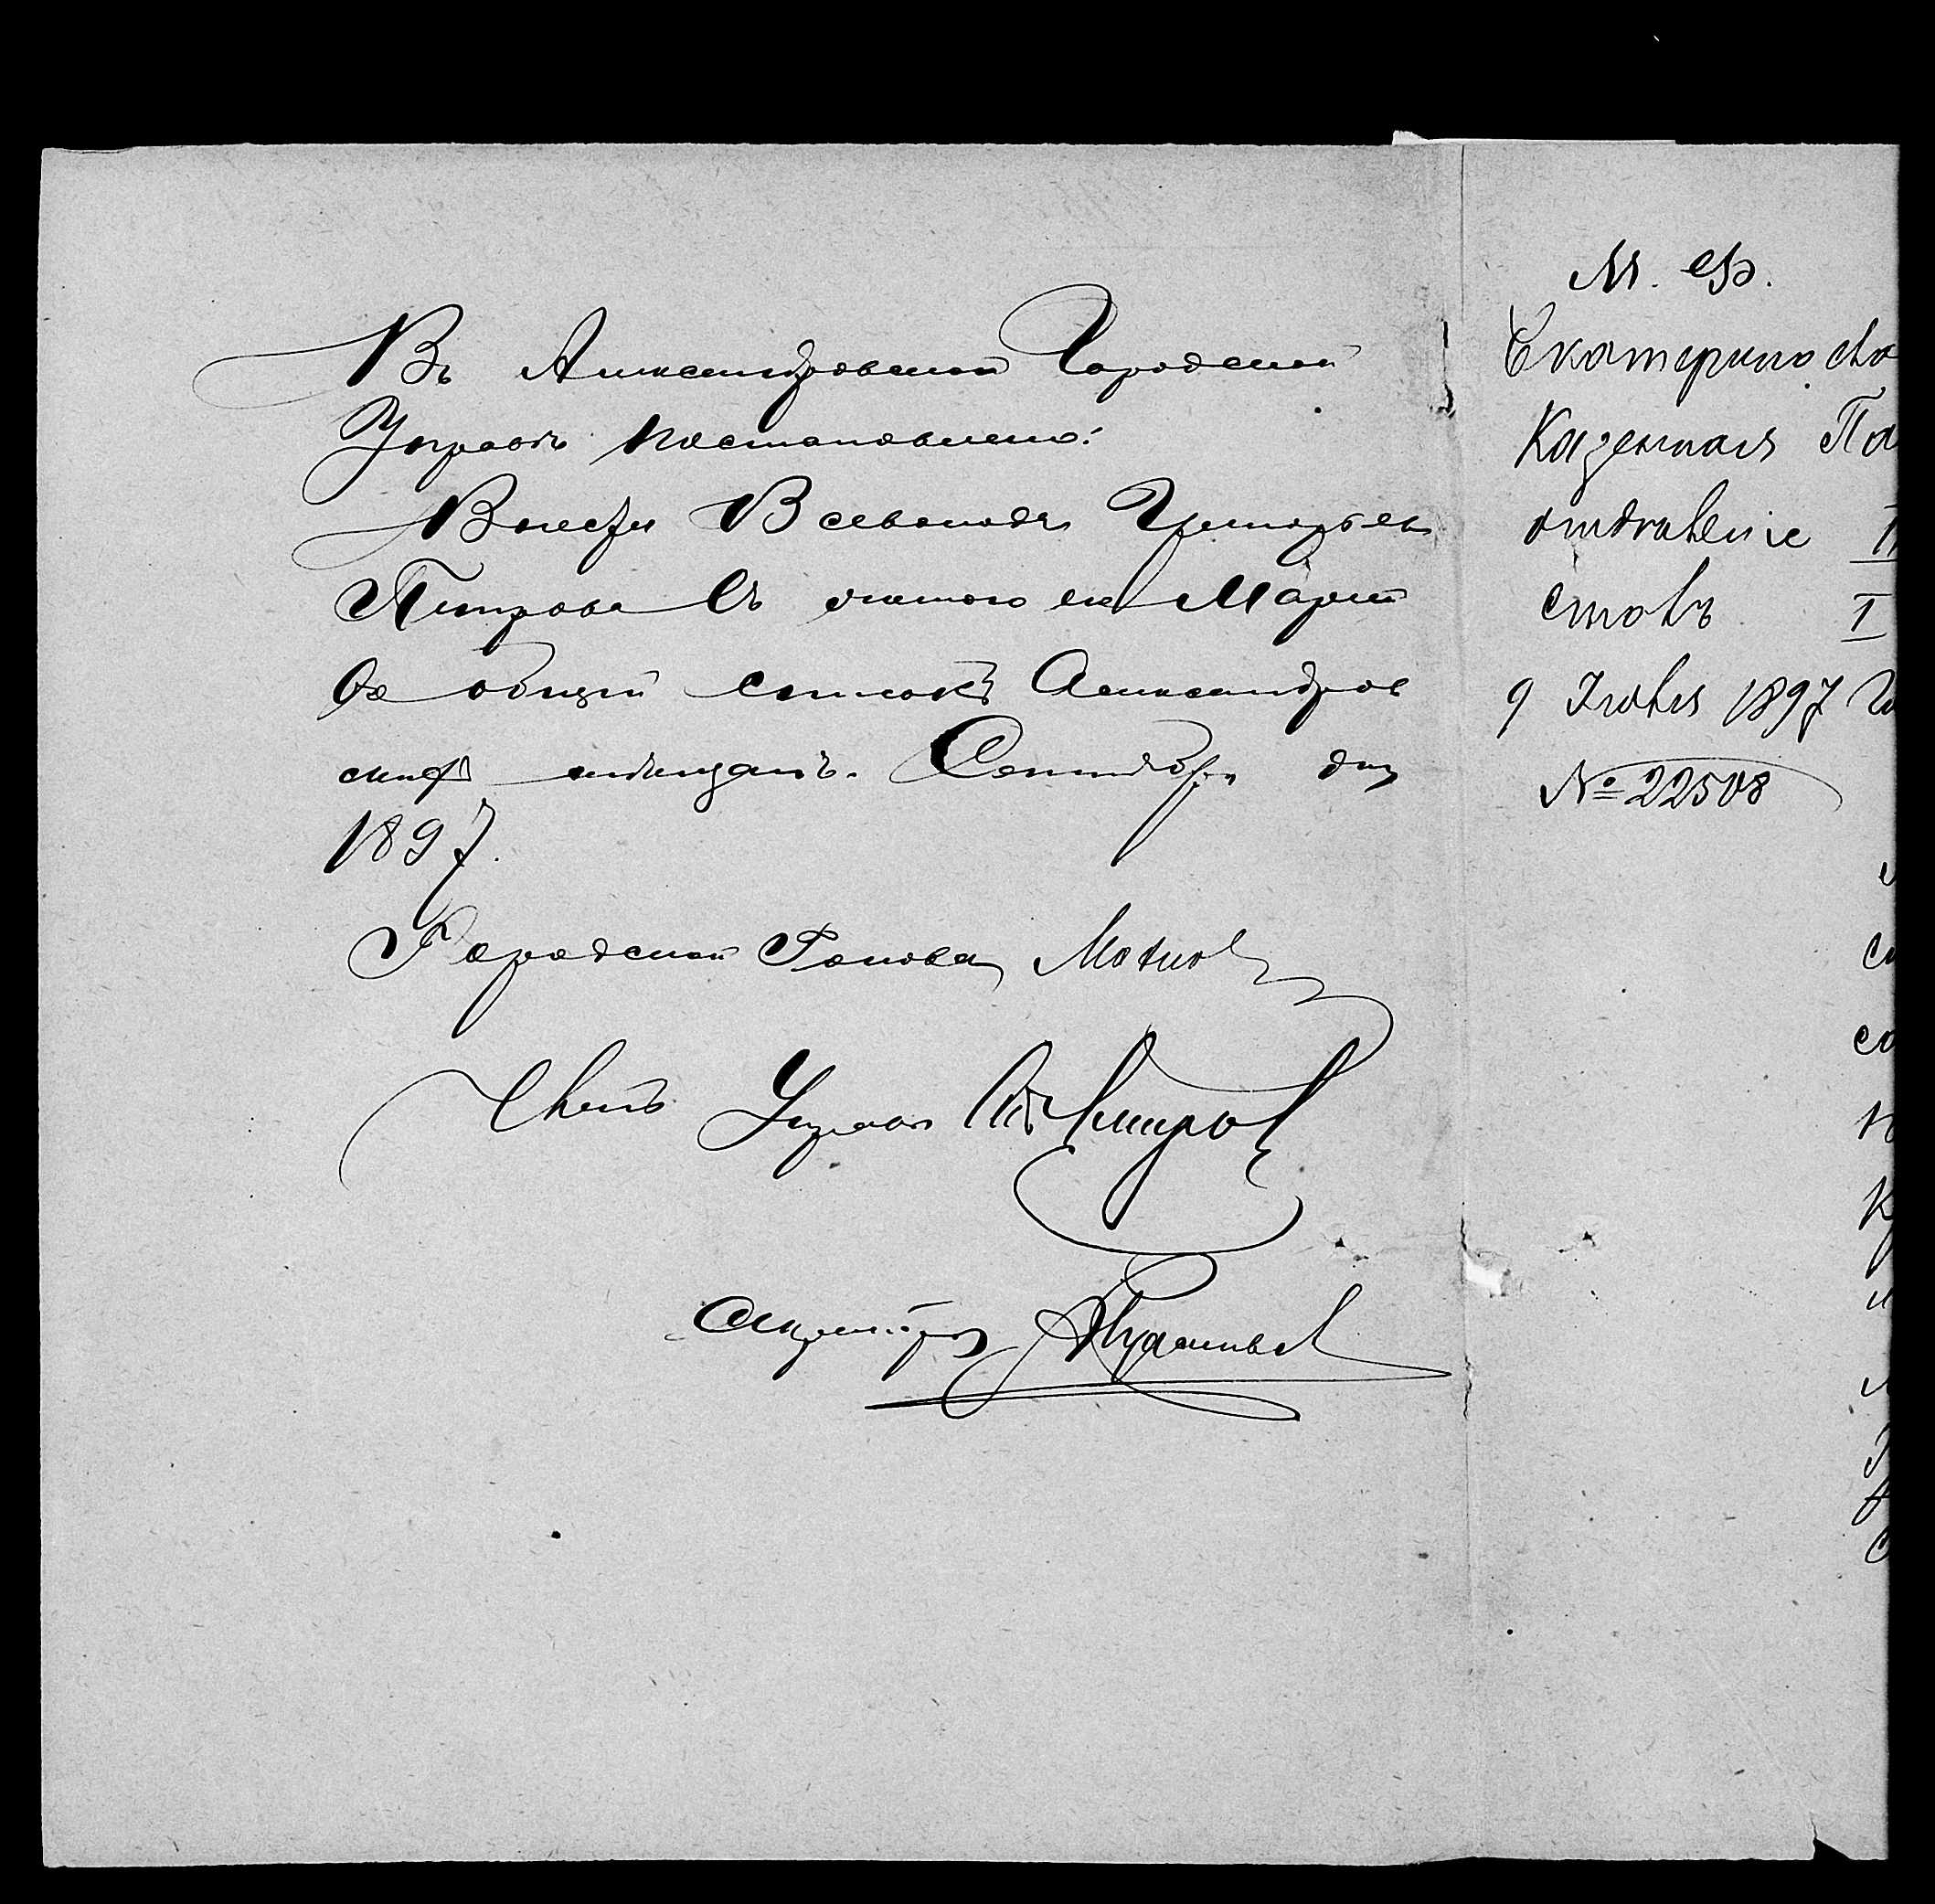 Въ Александровской Городской
Управѣ постановлено:
Внести Всеволода Григорьева
Петрова съ женою его Марией
въ общий списокъ Александров
скихъ мѣщанъ. Сентября дня
1897.
Городской Голова
Членъ Управы
Секретарь
М. Ф.
Екатериносла
Казенная Па
отдѣление II
столъ I
9 Июля 1897 го
№ 22508